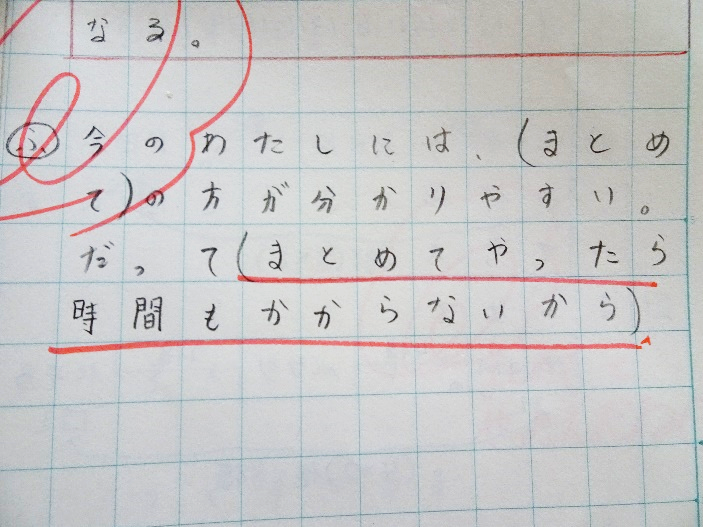 なる。
ふ 今のわたしには、(まとめ
て)の方が分かりやすい。
だって(まとめてやったら
時間もかからないから)